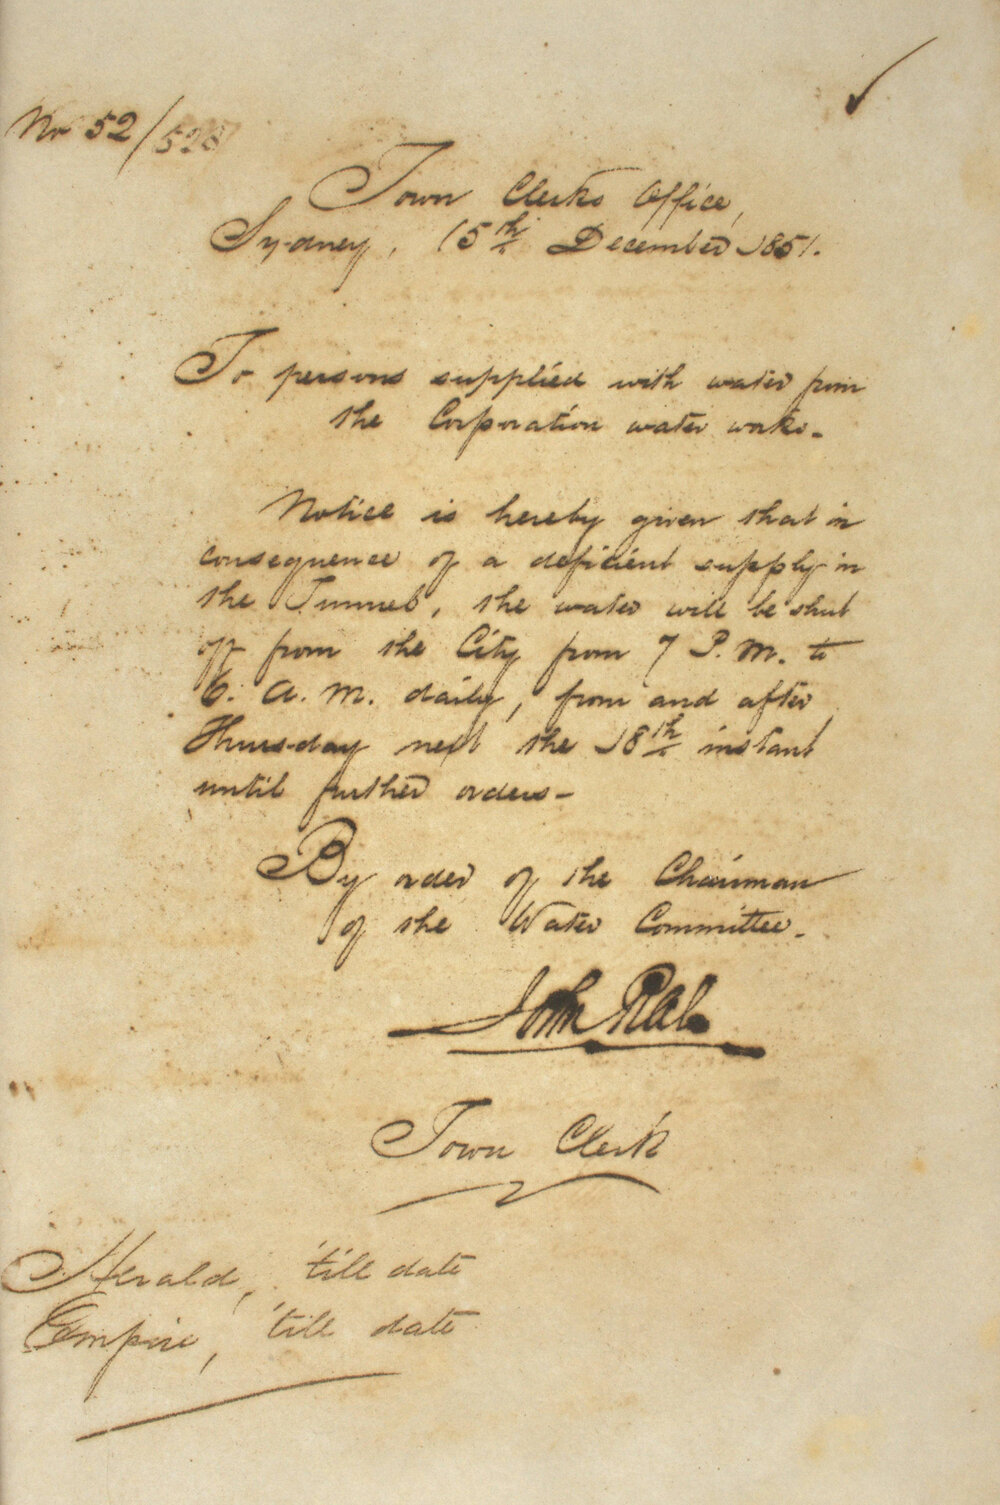 No 52/528
Town Clerks Office,
Sydney, 15th December 1851.
To persons supplied with water from
the Corporation water works_
Notice is hereby given that in
consequence of a deficient supply in
the Tunnel, the water will be shut
off from the City from 7 P.M. to
6. A.M. daily, from and after
Thursday next the 18th instant
until further orders_
By order of the Chairman
of the Water Committee_
John Rae
Town Clerk
Herald, 'till date
Empire, 'till date